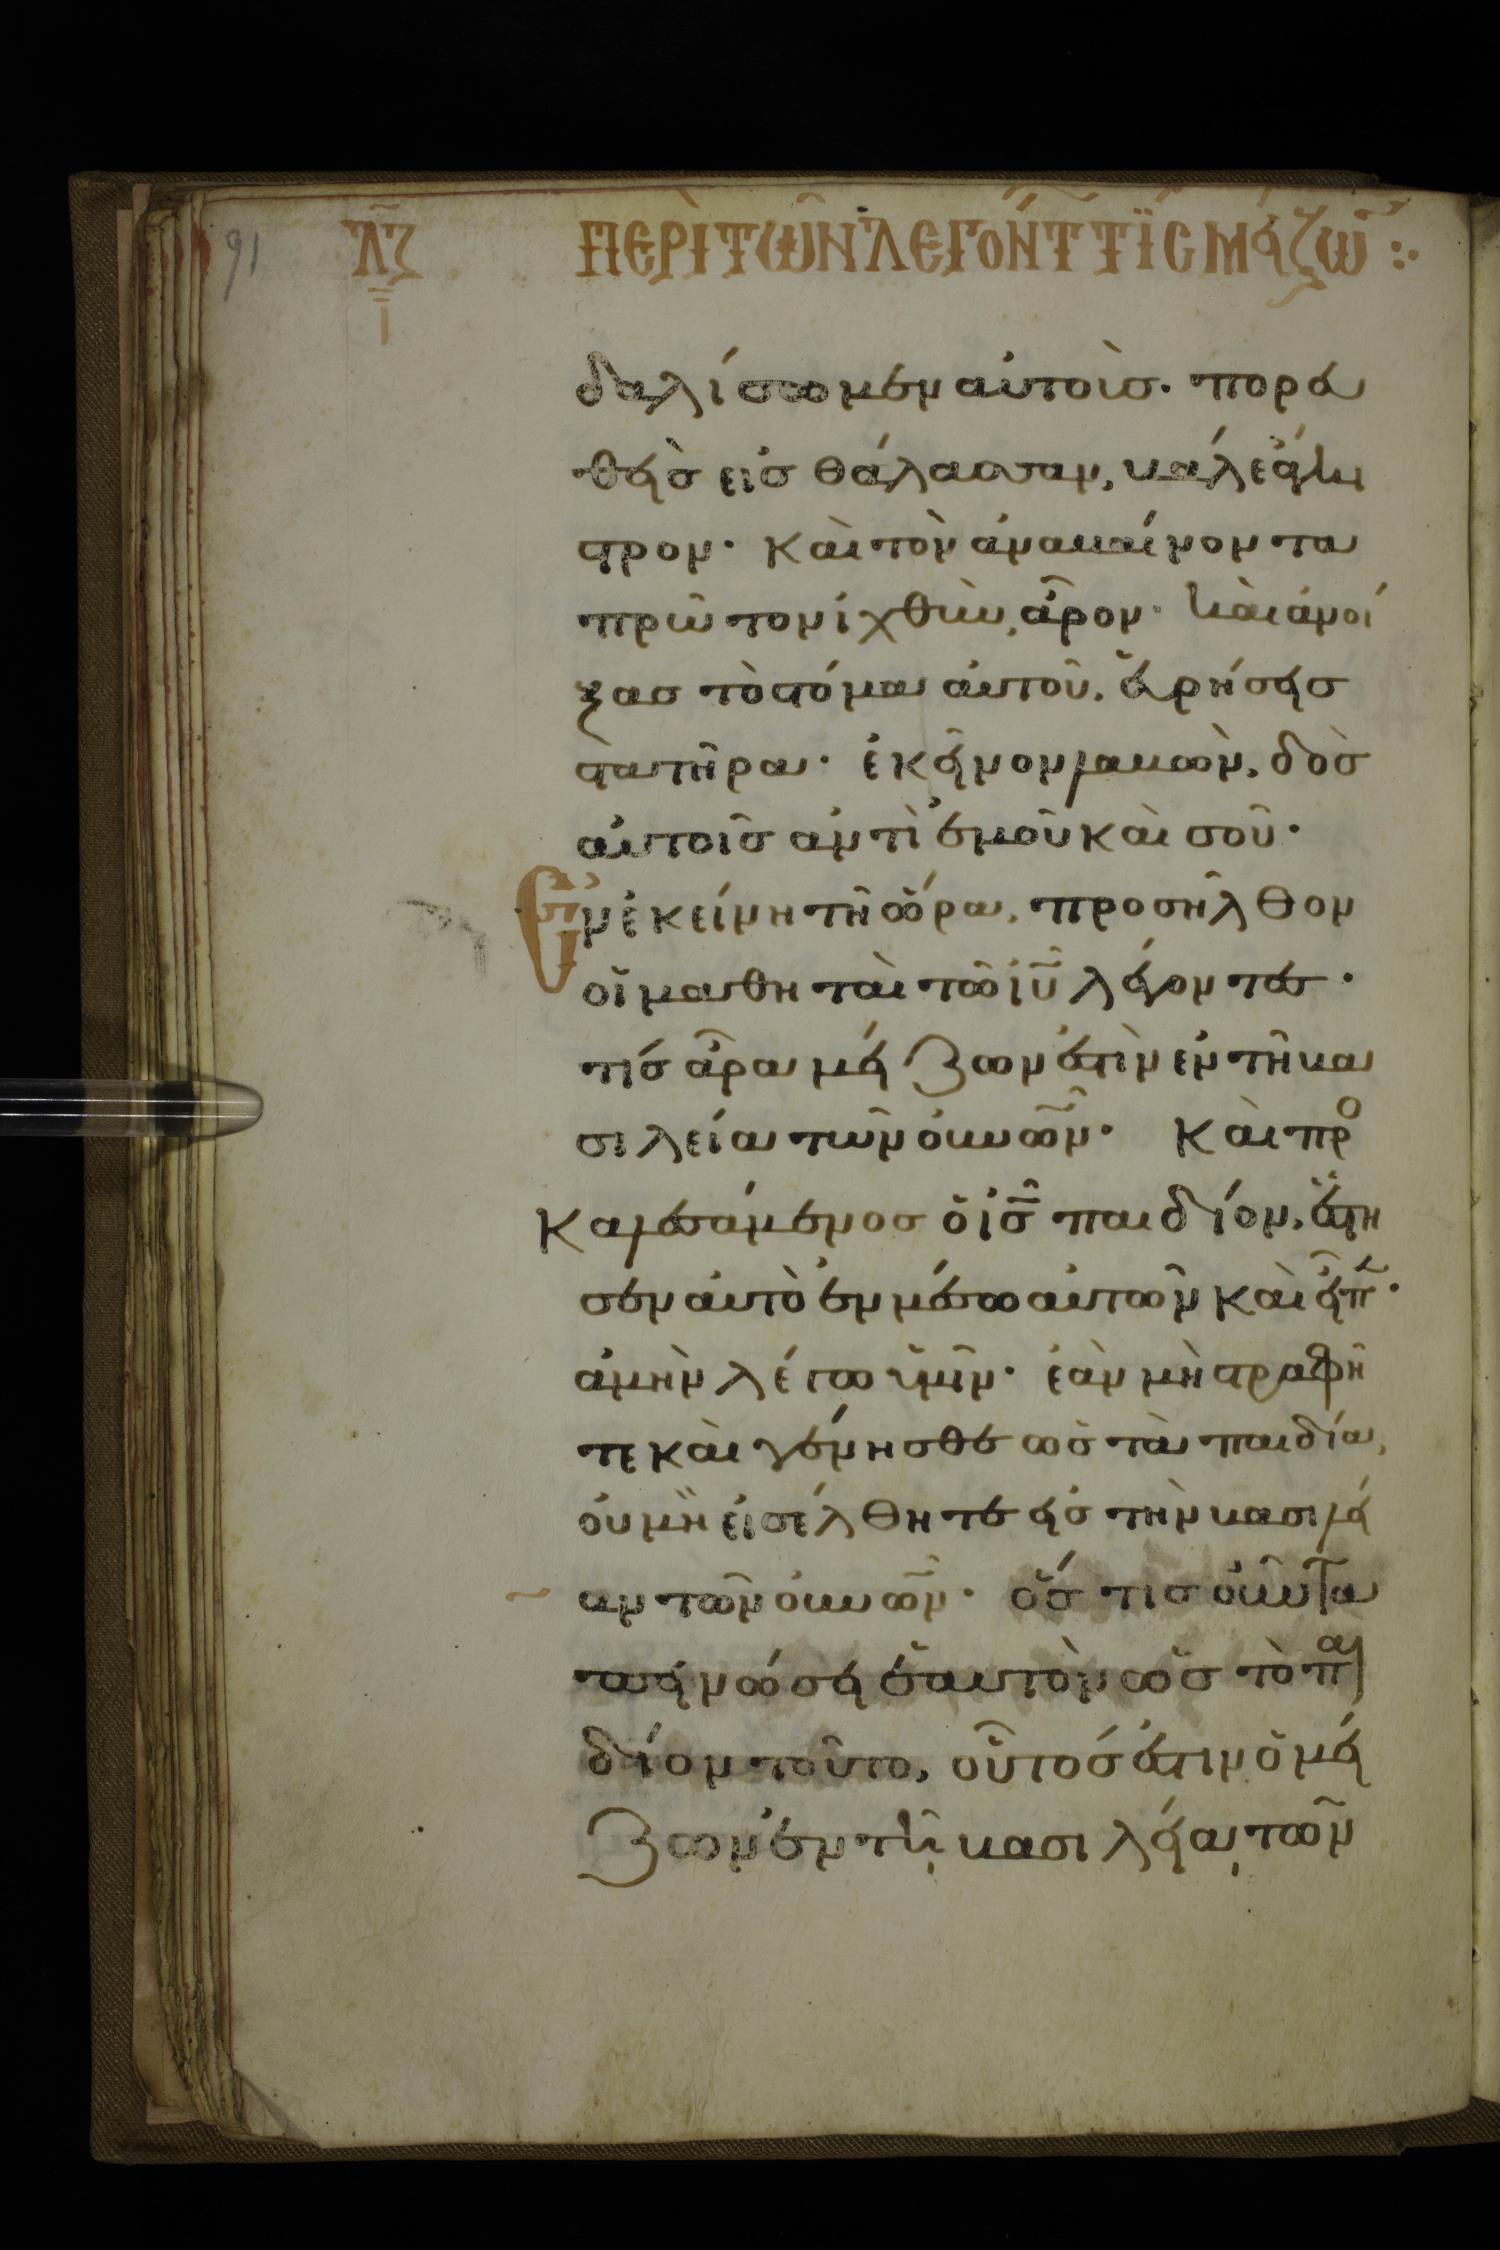 91 λζ περὶ τῶν λεγόντ τίς μείζω :·
ι
δαλίσωμεν αὐτοὺσ· πορευ
θεὶσ εἰσ θάλασσαν, βάλε ἄγκι
στρον· καὶ τὸν ἀναβαίνοντα
πρῶτον ἰχθὺν, ἆρον· καὶ ἀνοί
ξασ τὸ στόμα αὐτοῦ, εὑρήσεισ
στατῆρα· ἐκεῖνον λαβὼν, δὸσ
αὐτοῖσ ἀντὶ ἐμοῦ καὶ σοῦ·
Ἐν ἐκείνη τῆ ὥρα, προσῆλθον
οἱ μαθηταὶ τῶ ἰῦ λέγοντεσ·
τίσ ἆρα μείζων ἐστὶν ἐν τῆ βα
σιλεία τῶν οὐνῶν· καὶ προ
καλεσάμενοσ ὁ ἰσ παιδίον, ἔστη
σεν αὐτὸ ἐν μέσω αὐτῶν καὶ εἶπ·
ἀμὴν λέγω ὑμῖν· ἐὰν μὴ στραφῆ
τε καὶ γένησθε ὡσ τὰ παιδία,
οὐ μὴ εἰσέλθητε εἰσ τὴν βασιλεί
αν τῶν οὐνῶν· ὅστισ οὖν τα
πεινώσει ἑαυτὸν ὡσ τὸ παι
δίον τοῦτο, οὗτόσ ἐστιν ὁ μεί
ζων ἐν τῆ βασιλεία τῶν